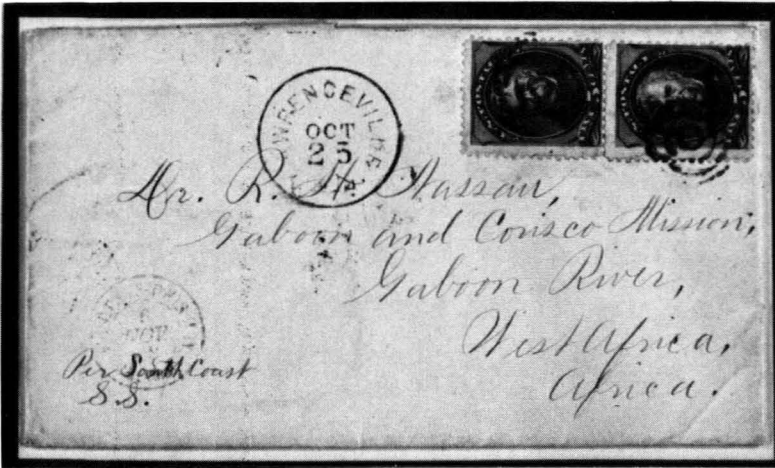 LAWRENCEVILLE
OCT
25
Dr. R. H. Nassau,
Gaboon and Corisco Mission,
Gaboon River,
West Africa,
Africa.
NOV
Per South Coast
S.S.